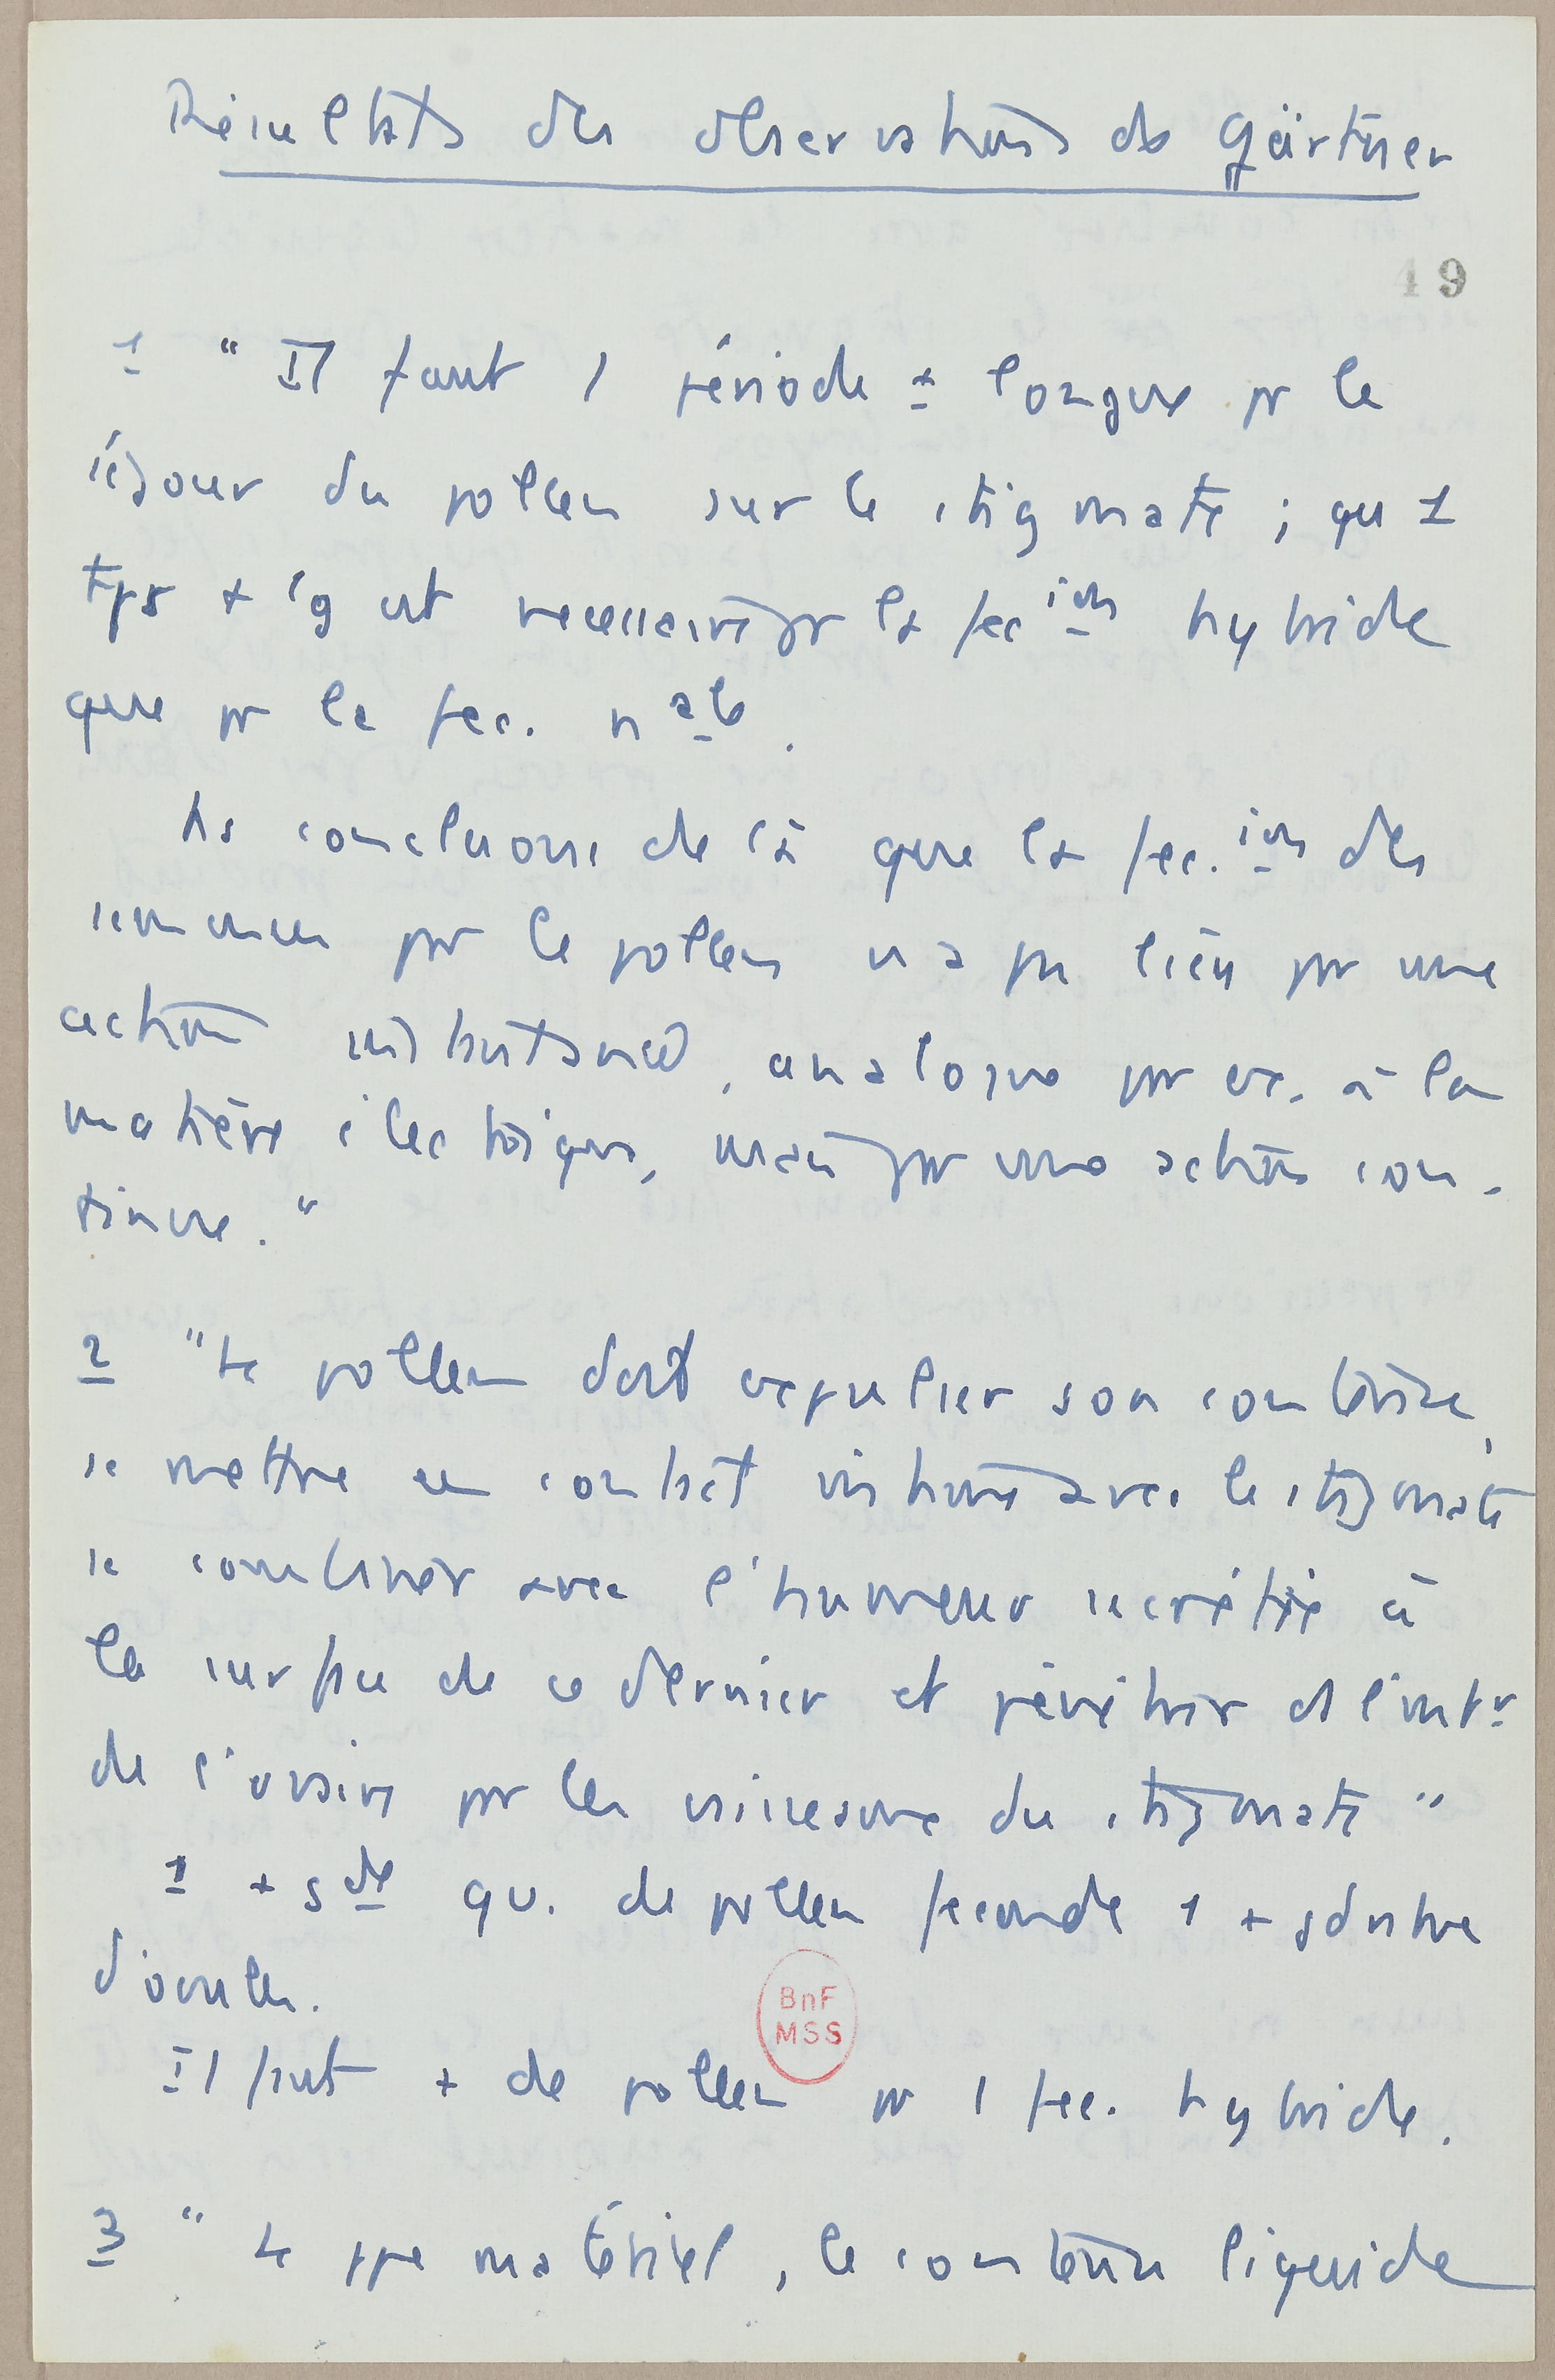 Résultats des observations de Gärtner
49
1 " Il faut 1 période ± longue pr le
séjour du pollen sur le stigmate ; qu 1
tps + lg est necessaire pr la fec ion hybride
que pr la fec. n ale.
Ns concluons de là que la fec. ion des
semences par le pollen n a pas lieu par une
action instantanée, analogue par ex. à la
matière électrique, mais par une action con-
tinue. "
2 " Le pollen doit expulser son contenu,
se mettre en contact intime avec le stigmate
se combiner avec l'humeur secrétée à
la surface de ce dernier et pénétrer ds l'intr
de l'ovaire par les vaisseaux du stigmate "
1 + gde qu. de pollen feconde 1 + gd nbre
d'ovules.
Il faut + de pollen pr 1 fec. hybride.
3 " Le ppe matériel, le contenu liquide
BnF
MSS